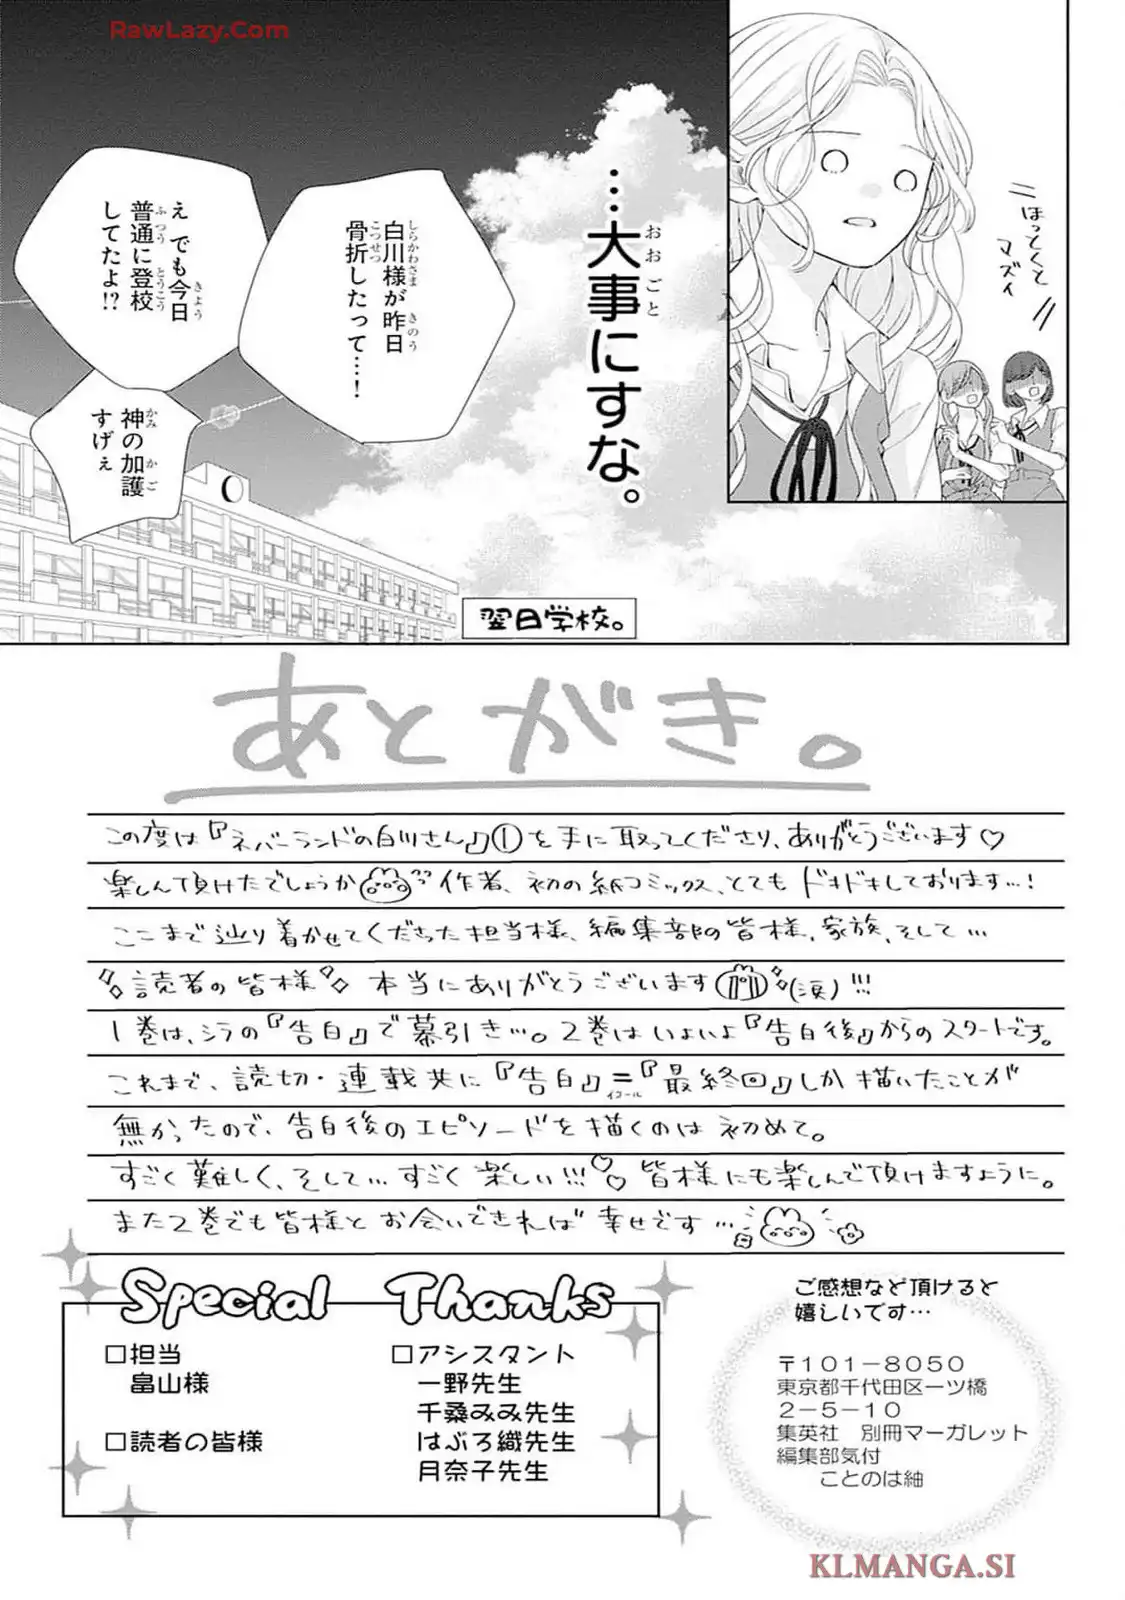 RawLazy.Com
ほっとくと
マズイ
…大事にすな。
おおごと
白川様が昨日
しらかわさま
きのう
骨折したって…!
こつせつ
え でも今日
きょう
普通に登校
ふつう
とうこう
してたよ!?
神の加護
かみ
かご
すげぇ
翌日学校。
あとがき。
この度は『ネバーランドの白川さん』①を手に取ってくださり、ありがとうございます♡
楽しんで頂けたでしょうか 作者、初の紙コミックス、とてもドキドキしております…!
ここまで辿り着かせてくださった担当様、編集部の皆様、家族、そして…
読者の皆様 本当にありがとうございます (涙)!!!
1巻は、シラの『告白』で幕引き…。2巻はいよいよ『告白後』からのスタートです。
これまで、読切・連載共に『告白』=『最終回』しか描いたことが
イコール
無かったので、告白後のエピソードを描くのは初めて。
すごく難しく、そして…すごく楽しい!!!♡♡ 皆様にも楽しんで頂けますように。
また2巻でも皆様とお会いできれば幸せです…
Special Thanks
□担当
畠山様
□読者の皆様
□アシスタント
一野先生
千桑みみ先生
はぶろ織先生
月奈子先生
ご感想など頂けると
嬉しいです…
〒101-8050
東京都千代田区一ツ橋
2-5-10
集英社 別冊マーガレット
編集部気付
ことのは紬
KLMANGA.SI